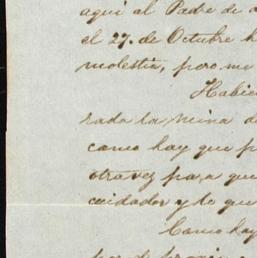 aquí al Padre de
el 27. de Octubre h
molestia, pero me
Habie
rada la mina d
camo hay que p
otra vez para que
cuidador y lo que
Camo hay